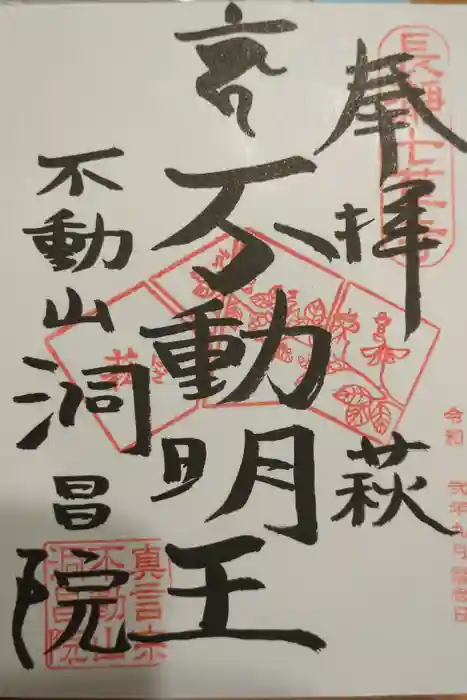 奉拝
萩
長瀞七草寺
令和 弐年九月
不動明王
不動山洞昌院
真言宗
不動山
洞昌院